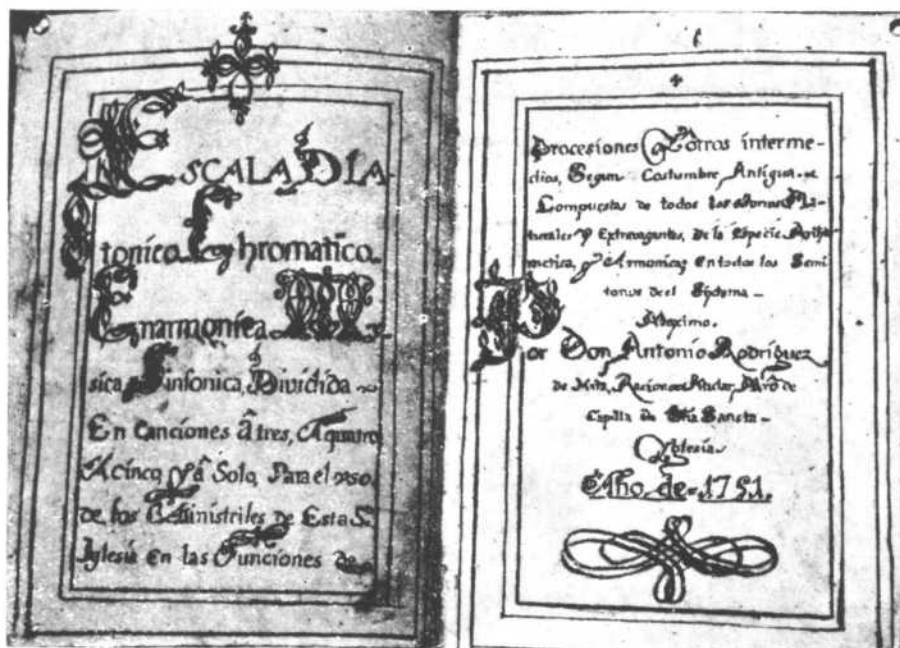 ESCALA DIA-
tonico Chromatico
Enarmonica Mu-
sica Sinfonica, Dividida
En canciones â tres, A quatro
A cinco, y â Solo, Para el vso
de los Ministriles de Esta S.
Iglesia en las Funciones de
Procesiones Y otros interme-
dios, Segun Costumbre Antigua
Compuestas de todos los tonos Na-
turales Y Extravagantes, de la Especie Arith
metica, y Armonica, en todos los Semi
tonos de el Sistema
Maximo.
Por Don Antonio Rodríguez
de Hita, Racionero Titular, de
Capilla de Sancta
Yglesia.
Año de 1751.